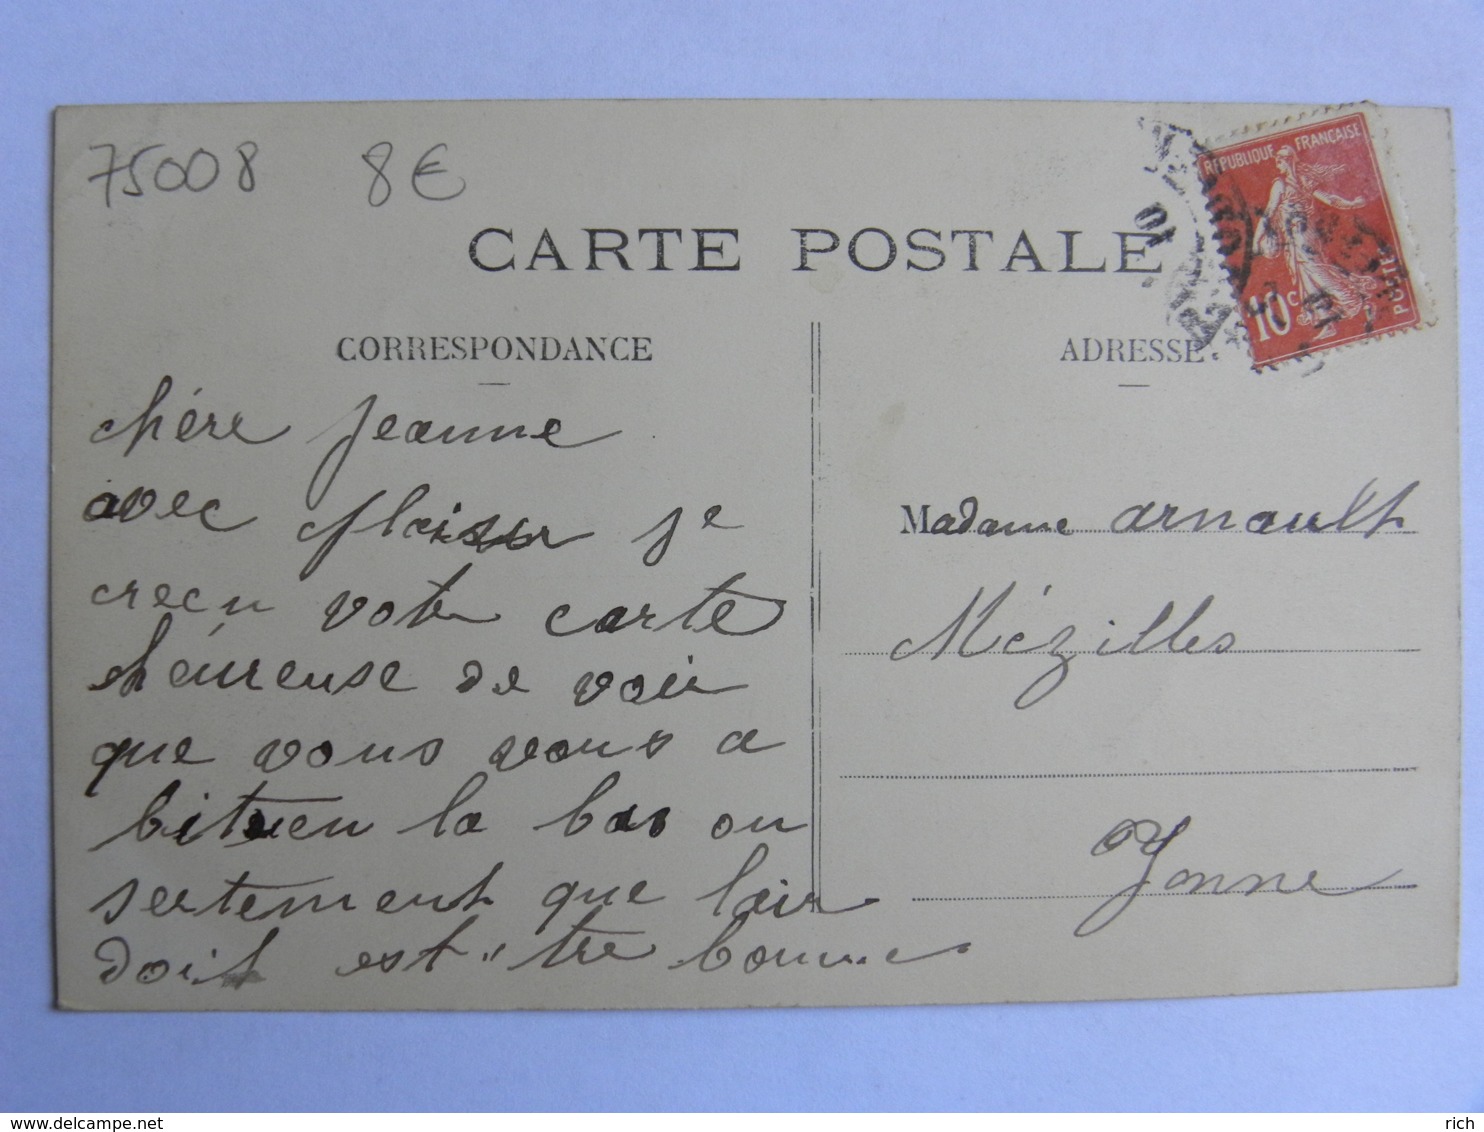 75008 8€
CARTE POSTALE
REPUBLIQUE FRANÇAISE
10c
POSTES
CORRESPONDANCE
ADRESSE
chère Jeanne
avec plaisir je
crecu votre carte
héureuse de voir
que vous vous a
bituen la bas ou
sertement que lair
doit est "tre bonne
Madame arnault
Mézilles
Yonne
www.delcampe.net
rich